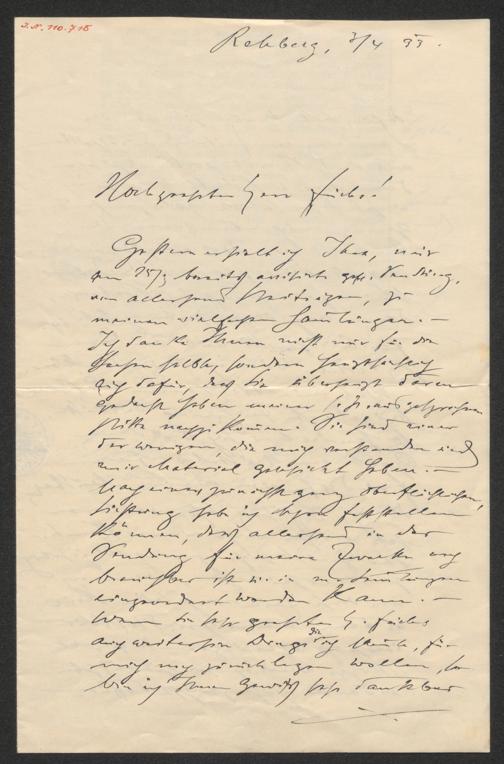 J.N. 110.715
Rehberg, 3/4 95.
Hochgeehrter Herr Fuchs!
Gestern erhielt ich Ihre, mir
am 25/3 bereits avisirte gef. Sendung,
von allerhand Beiträgen, zu
meinen vielfachen Sammlungen. –
Ich danke Ihnen nicht nur für die
Sachen selbst, sondern hauptsächlich
auch dafür, daß Sie überhaupt daran
gedacht haben meiner s. Z. ausgesprochenen
Bitte nachzukommen. Sie sind einer
der wenigen, die mich verstanden und
mir Material geschickt haben. –
Nach einer zunächst ganz oberflächlichen
Sichtung hab ich schon feststellen
können, daß allerhand in der
Sendung für meine Zwecke auch
brauchbar ist u. in m. Sammlungen
eingeordnet werden kann. –
Wenn Sie sehr geehrter H. Fuchs
auch weiterhin Dinge die ich suche, für
mich noch zurücklegen wollen, so
bin ich Ihnen gewiß sehr dankbar